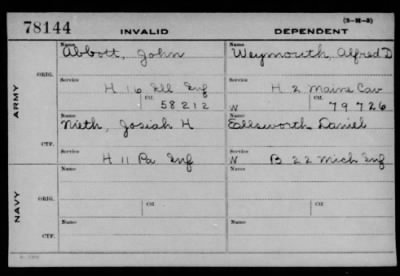 78144 INVALID DEPENDENT (3-M-3)
Name Name
Abbott, John Weymouth, Alfred D
ARMY
ORIG.
Service Service
H 16 Ill Inf H 2 Maine Cav
Ctf. Ctf.
58212 W 79726
Name Name
Nieth, Josiah H Ellsworth Daniel
CTF.
Service Service
H 11 Pa Inf W B 22 Mich Inf
NAVY
Name Name
ORIG. Ctf. Ctf.
Name Name
CTF.